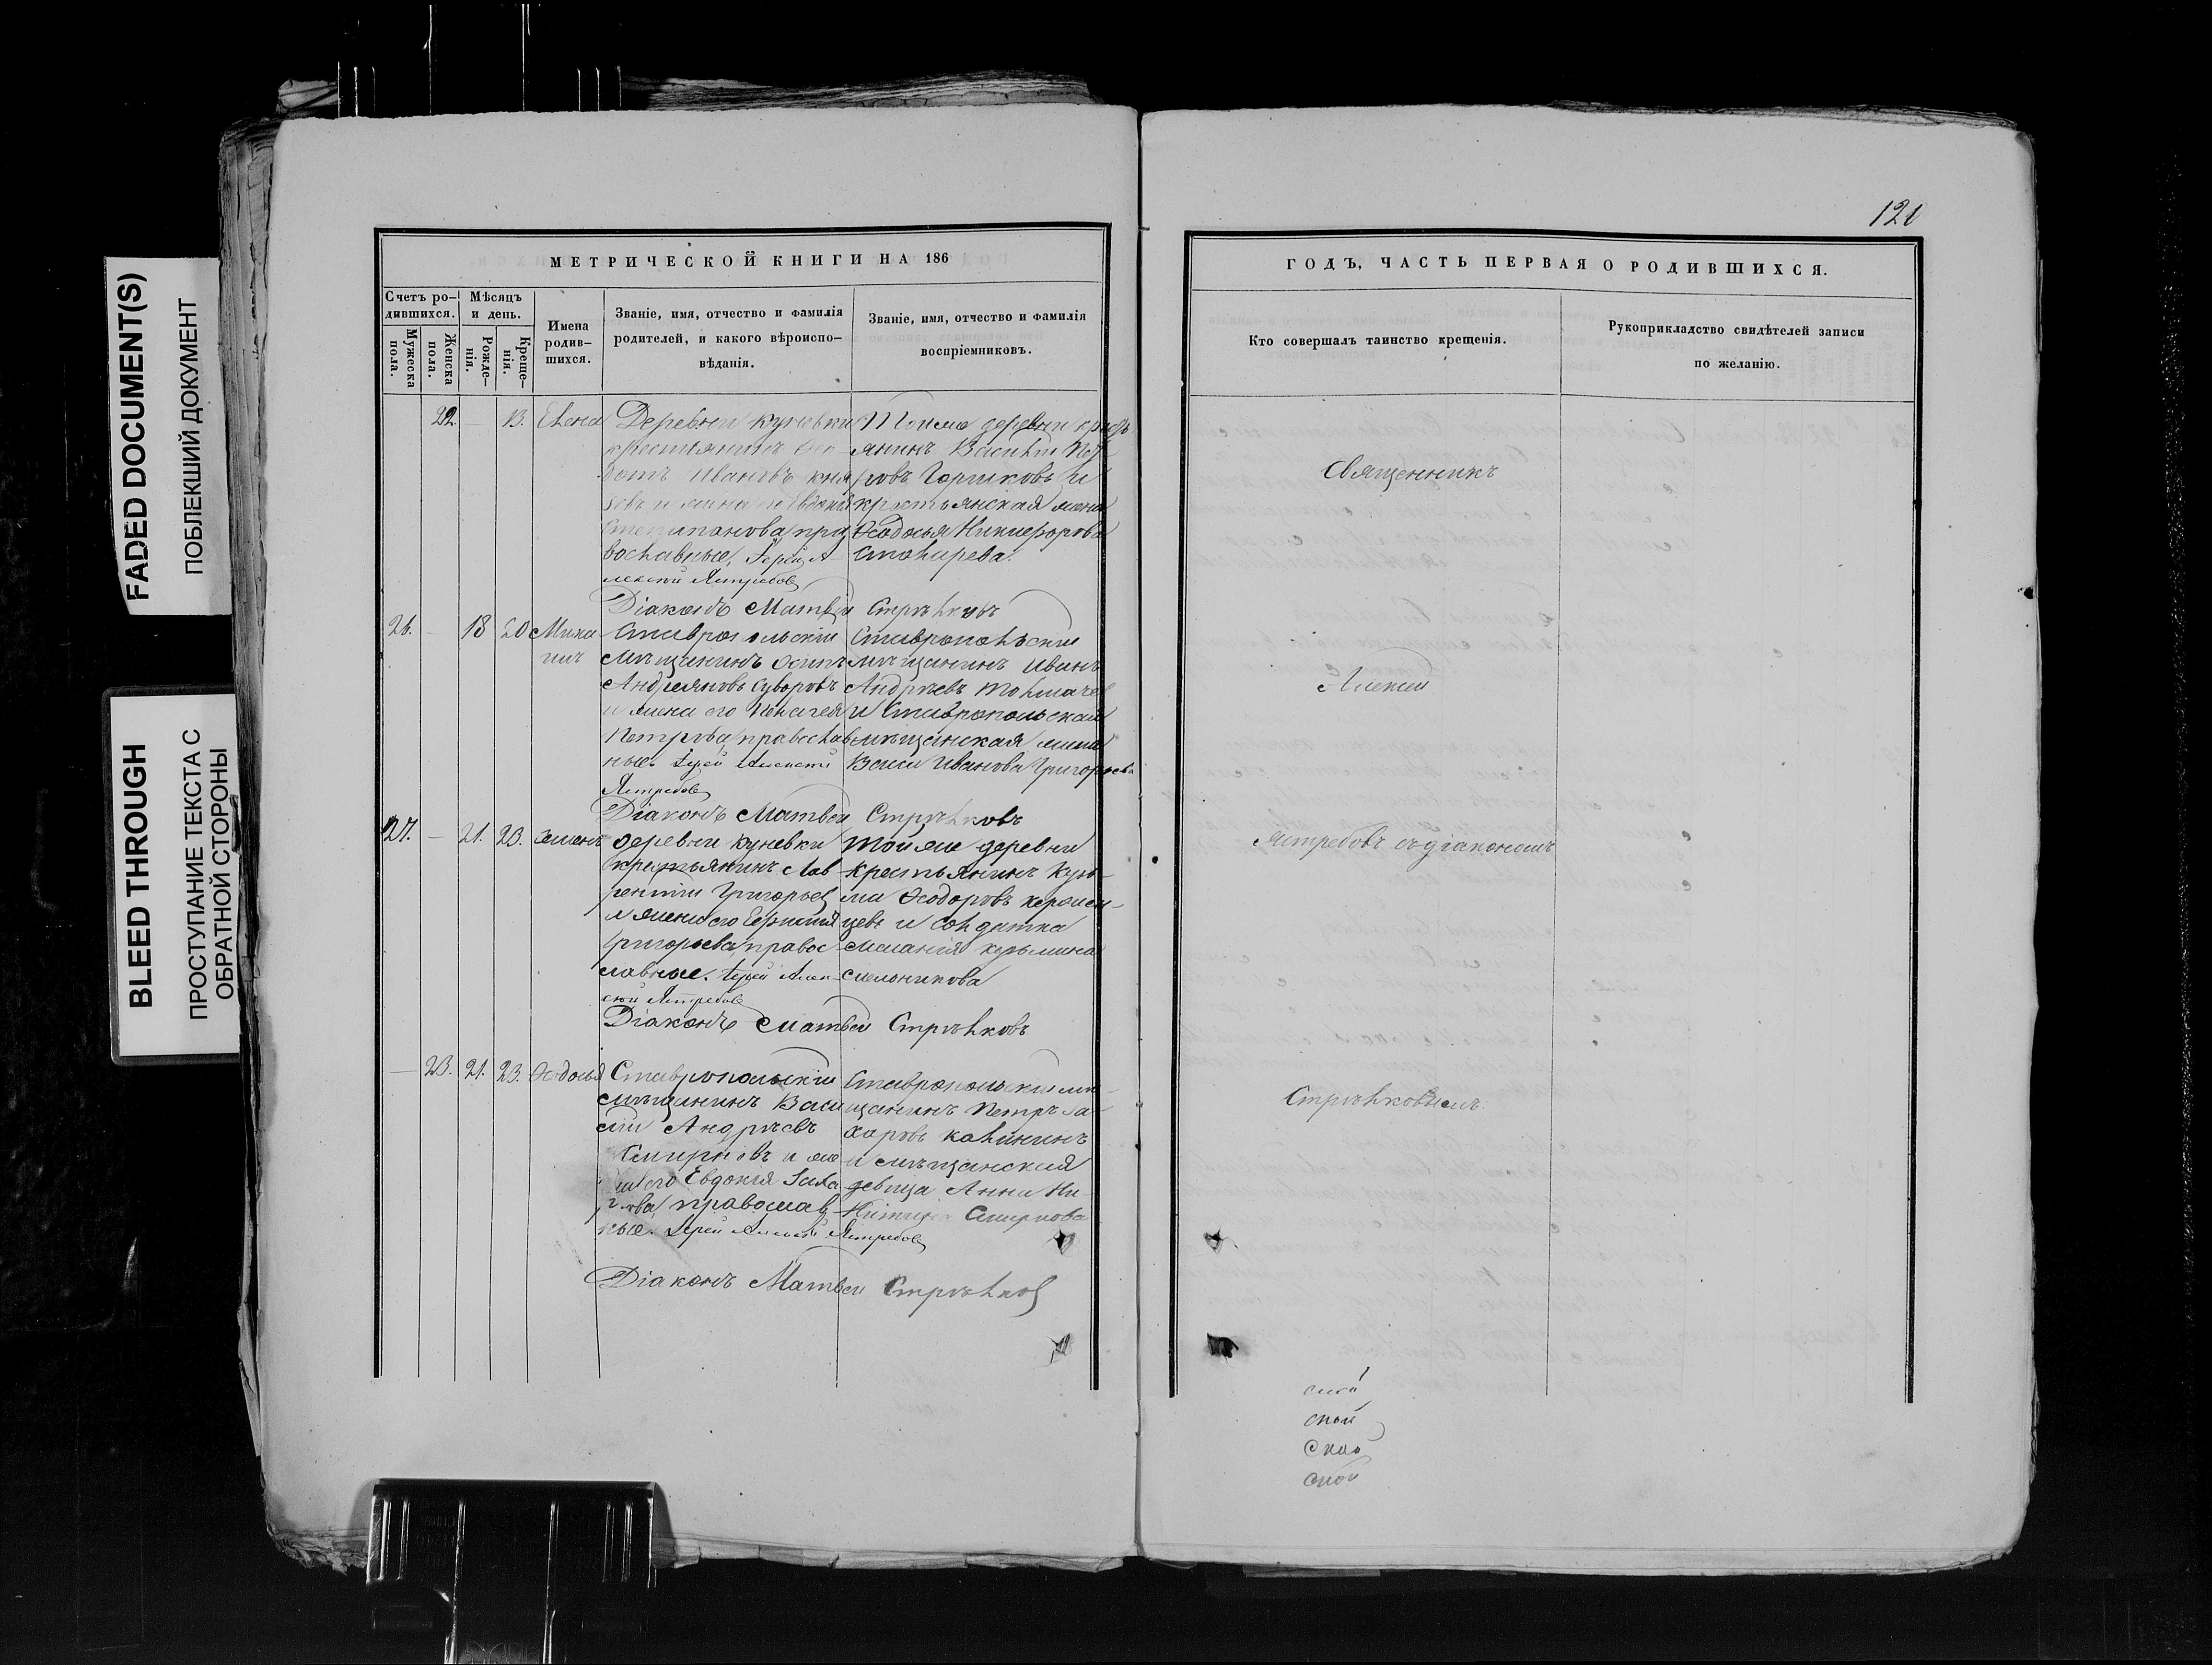 FADED DOCUMENT(S)
ПОБЛЕКШИЙ ДОКУМЕНТ
BLEED THROUGH
ПРОСТУПАНИЕ ТЕКСТА С
ОБРАТНОЙ СТОРОНЫ
МЕТРИЧЕСКОЙ КНИГИ НА 186
Счетъ ро-
дившихся.
Мужеска
пола.
Женска
пола.
Мѣсяцъ
и день.
Рожде-
нія.
Креще-
нія.
Имена
родив-
шихся.
Званіе, имя, отчество и фамилія
родителей, и какого вѣроиспо-
вѣданія.
Званіе, имя, отчество и фамилія
воспріемниковъ.
22. — 13. Елена
Деревни куневки
крестьянинъ Ѳео-
дотъ Ивановъ кня
зевъ и жена его Евдокия
Степанова, пра
вославные, Іерей А
лексей Ястребовъ
Тойже деревни крестъ
янинъ Василiй Пет
ровъ Горшковъ и
крестьянская жена
Ѳеодосья Никифорова
Столярева.
Діаконъ Матвѣй Стрѣлковъ
26. — 18 20 Миха
илъ
Ставропольскiй
мѣщанинъ Осипъ
Андреяновъ Суворовъ
и жена его Пелагея
Петрова, православ
ные. Іерей Алексей
Ястребовъ
Ставропольскiй
мѣщанинъ Иванъ
Андрѣевъ Толмачев
и Ставропольская
мѣщанская жена
Васса Иванова Григорьева
Діаконъ Матвей Стрѣлковъ
27. — 21. 23. Семенъ
деревни куневки
крестьянинъ Лав
рентiй Григорьев
и жена его Евфимия
Григорьева, правос
лавные. Іерей Алек-
сей Ястребовъ
Тойже деревни
крестьянинъ Кузь-
ма Ѳеодоровъ
цевъ и солдатка
Меланiя кузьмина
Мельникова
Діаконъ Матвей Стрѣлковъ
— 23. 21. 23. Ѳеодосья
Ставропольскiй
мѣщанинъ Васи
лiй Андрѣевъ
Смирновъ и же
на его Евдокiя Заха
рова, православ
ные. Іерей Алексей Ястребовъ
Ставропольскiй мѣ
щанинъ Петръ За
харовъ калининъ
и мѣщанская
девица Анна Ни
Смирнова
Діаконъ Матвей Стрѣлков
121
ГОДЪ, ЧАСТЬ ПЕРВАЯ О РОДИВШИХСЯ.
Кто совершалъ таинство крещенія.
Рукоприкладство свидѣтелей записи
по желанію.
Священникъ
Алексей
Ястребовъ съ діакономъ
Стрѣлковымъ.
ской